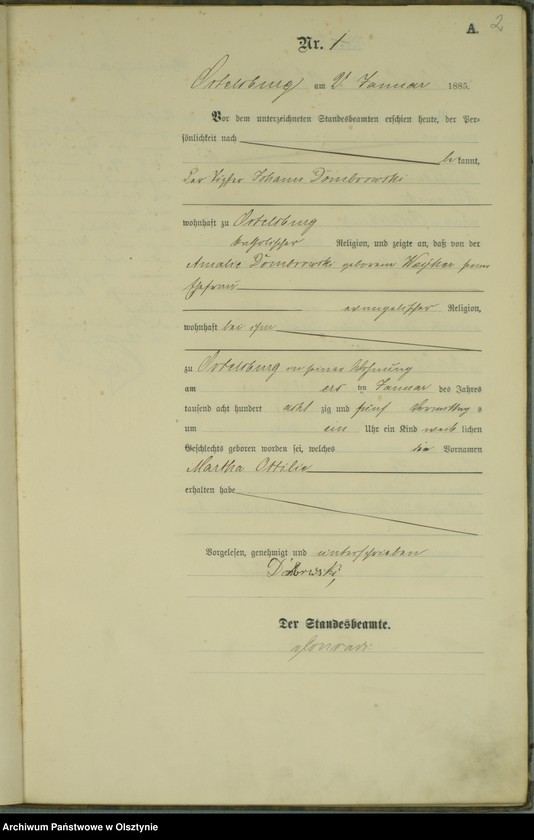 A. 2
Nr. 1
Ortelsburg am 2. Januar 1885.
Vor dem unterzeichneten Standesbeamten erschien heute, der Per-
sönlichkeit nach
be kannt,
der Töpfer Johann Dombrowski
wohnhaft zu Ortelsburg
katholischer Religion, und zeigte an, daß von der
Amalie Dombrowski geborene seiner
Ehefrau
evangelischer Religion,
wohnhaft bei ihm
zu Ortelsburg in seiner Wohnung
am ersten Januar des Jahres
tausend acht hundert acht zig und fünf Vormittags
um ein Uhr ein Kind weib lichen
Geschlechts geboren worden sei, welches die Vornamen
Martha Ottilie
erhalten habe
Vorgelesen, genehmigt und unterschrieben
Der Standesbeamte.
Archiwum Państwowe w Olsztynie